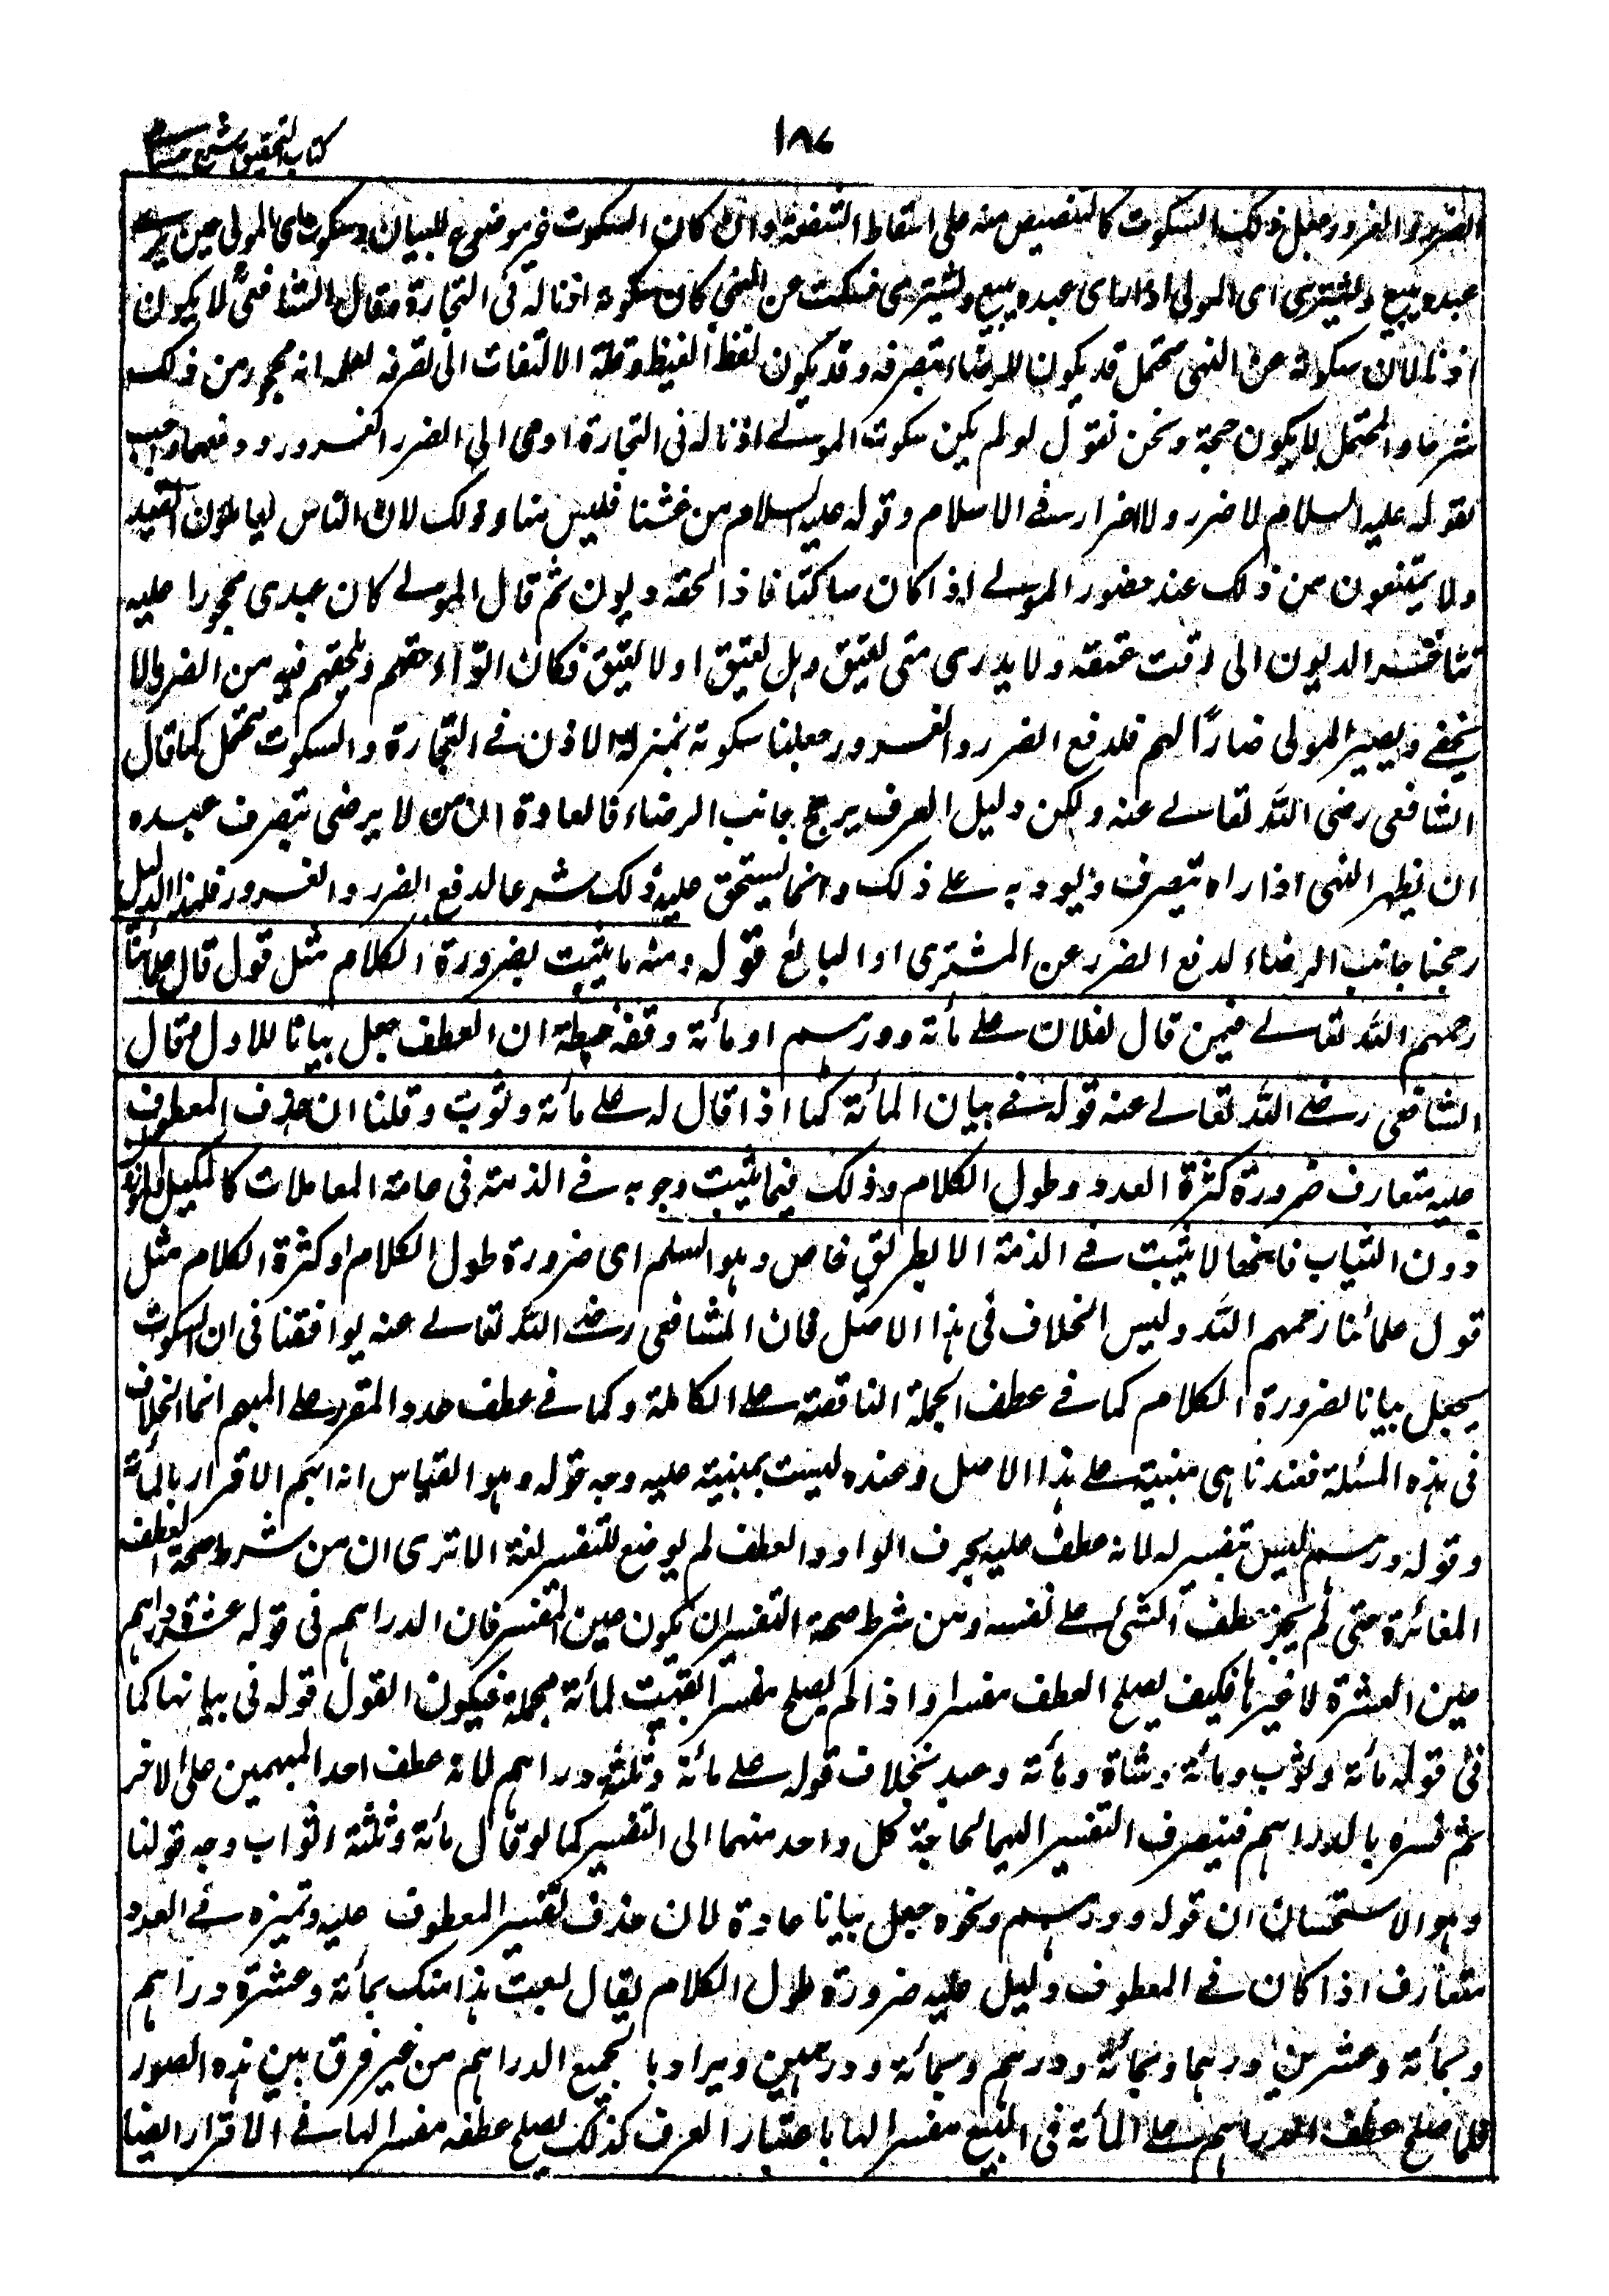 ١٨٧
كتاب التحقيق شرح حسامى
الضرر والغرور جعل ذلك السكوت كالتنصيص منه على اسقاط الشفعة وان كان السكوت غير موضوع للبيان وسكوت المولى حين يرى
عبده يبيع ويشترى اى المولى اذا رأى عبده يبيع ويشترى فسكت عن النهى كان سكوته اذنا له فى التجارة وقال الشافعى لا يكون
اذنا لان سكوته عن النهى محتمل قد يكون للرضاء بتصرفه وقد يكون لفظ الغيظ وقلة الالتفات الى تصرفه لعلمه انه محجور من ذلك
شرعا والمحتمل لا يكون حجة ونحن نقول لو لم يكن سكوت المولى اذنا له فى التجارة ادى الى الضرر والغرور ودفعهما واجب
لقوله عليه السلام لا ضرر ولا اضرار فى الاسلام وقوله عليه السلام من غشنا فليس منا وذلك لان الناس يعاملون العبيد
ولا يمتنعون من ذلك عند حضور المولى اذا كان ساكتا فاذا لحقه ديون ثم قال المولى كان عبدى محجورا عليه
تتأخر الديون الى وقت عتقه ولا يدرى متى يعتق وهل يعتق او لا يعتق فكان التواء حقهم ويلحقهم فيه من الضرر ما لا
يخفى ويصير المولى ضارا لهم فلدفع الضرر والغرور جعلنا سكوته بمنزلة الاذن فى التجارة والسكوت محتمل كما قال
الشافعى رضى الله تعالى عنه ولكن دليل العرف يرجح جانب الرضاء فالعادة ان من لا يرضى بتصرف عبده
ان يظهر النهى اذا راه يتصرف ويؤدبه على ذلك وانما يستحق عليه ذلك شرعا لدفع الضرر والغرور فلهذا الدليل
رجحنا جانب الرضاء لدفع الضرر عن المشترى او البائع قوله ومنه ما يثبت بضرورة الكلام مثل قول قال علمائنا
رحمهم الله تعالى فيمن قال لفلان على مأئة ودرهم او مأئة وقفيز حنطة ان العطف جعل بيانا للاول وقال
الشافعى رضى الله تعالى عنه قوله فى بيان المأئة كما اذا قال له على مائة وثوب وقلنا ان حذف المعطوف
عليه متعارف ضرورة كثرة العدد وطول الكلام وذلك فيما يثبت وجوبه فى الذمة فى عامة المعاملات كالمكيل والموزون
دون الثياب فانها لا يثبت فى الذمة الا بطريق خاص وهو السلم اى ضرورة طول الكلام او كثرة الكلام مثل
قول علمائنا رحمهم الله وليس الخلاف فى هذا الاصل فان الشافعى رضى الله تعالى عنه يوافقنا فى ان السكوت
يجعل بيانا لضرورة الكلام كما فى عطف الجملة الناقصة على الكاملة وكما فى عطف عدد المقرر على المبهم انما الخلاف
فى هذه المسئلة فعندنا هى مبنية على هذا الاصل وعنده ليست بمبنية عليه وجه قوله وهو القياس انه ابهم الاقرار بالمأئة
وقوله ودرهم ليس بتفسير له لانه عطف عليه بحرف الواو والعطف لم يوضع للتفسير لغة الا ترى ان من شرط صحة العطف
المغائرة حتى لم يجز عطف الشئ على نفسه ومن شرط صحة التفسير ان يكون عين المفسر فان الدراهم فى قوله عشرة دراهم
عين العشرة لا غيرها فكيف يصلح العطف مفسرا واذا لم يصلح مفسرا بقيت المأئة مجملة فيكون القول قوله فى بيانها كما
فى قوله مأئة وثوب ومأئة وشاة ومأئة وعبد بخلاف قوله على مأئة وثلثة دراهم لانه عطف احد المبهمين على الاخر
ثم فسره بالدراهم فينصرف التفسير اليهما لحاجة كل واحد منهما الى التفسير كما لو قال مأئة وثلثة اثواب وجه قولنا
وهو الاستحسان ان قوله ودرهم ونحوه جعل بيانا عادة لان حذف تفسير المعطوف عليه وتميزه فى العدد
متعارف اذا كان فى المعطوف دليل عليه ضرورة طول الكلام يقال بعت هذا منك بمأئة وعشرة دراهم
وبمأئة وعشرين درهما وبمأئة ودرهم وبمأئة ودرهمين ويراد بالجميع الدراهم من غير فرق بين هذه الصور
فلما صلح عطف الدراهم على المأئة فى البيع مفسرا لها باعتبار العرف كذلك يصلح عطفه مفسرا لها فى الاقرار ايضا